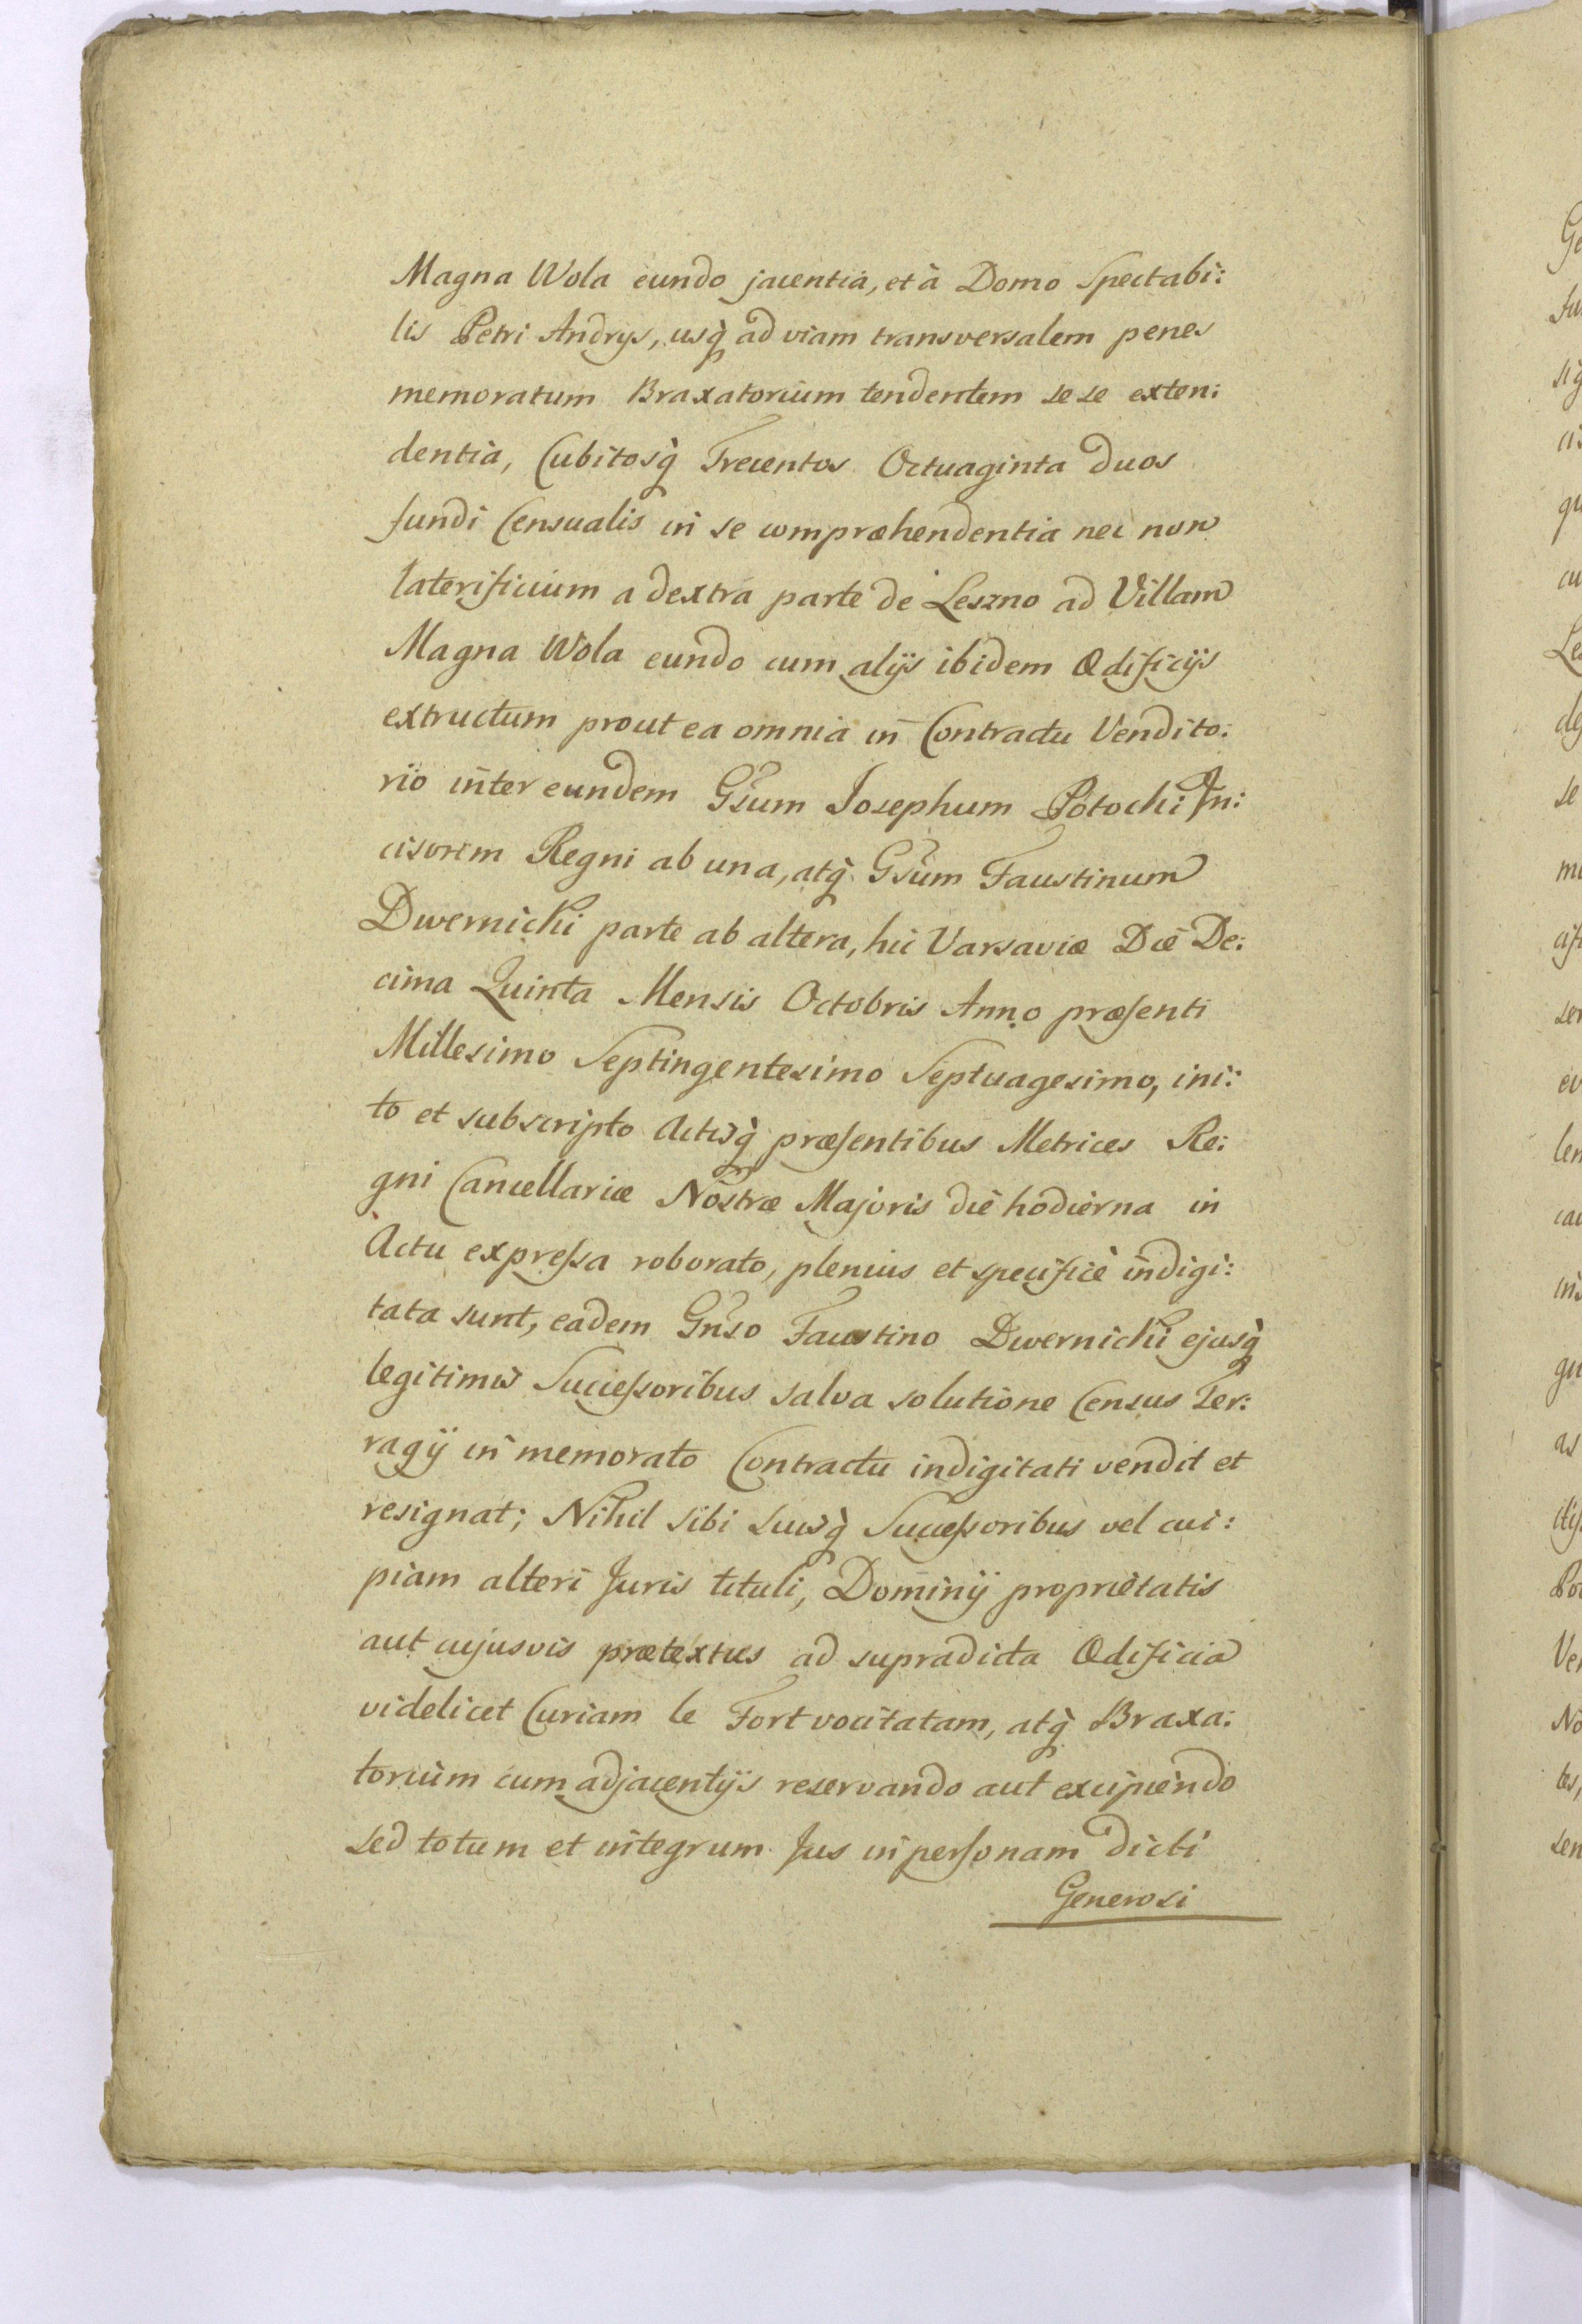 Magna Wola eundo jacentia, et à Domo Spectabi:
lis Petri Andrys, usq̀ ad viam transversalem penes
memoratum Braxatorium tendentem se se exten:
dentia, Cubitosq̀ Trecentos Octuaginta duos
fundi Censualis in se compræhendentia nec non
laterificium a dextra parte de Leszno ad Villam
Magna Wola eundo cum alijs ibidem Ædificijs
extructum prout ea omnia in Contractu Vendito:
rio inter eundem Gsum Josephum Potocki In:
cisorem Regni ab una, atq̀ Gsum Faustinum
Dwernicki parte ab altera, hic Varsaviæ Die De:
cima Quinta Mensis Octobris Anno præsenti
Millesimo Septingentesimo Septuagesimo, ini:
to et subscripto Actisq̀ præsentibus Metrices Re:
gni Cancellariæ Nostræ Majoris die hodierna in
Actu expressa roborato, plenius et specificè indigi:
tata sunt, eadem Gnso Faustino Dwernicki ejusq̀
legitimis Successoribus salva solutione Census Ter:
ragij in memorato Contractu indigitati vendit et
resignat; Nihil sibi suisq̀ Successoribus vel cui:
piam alteri Juris tituli, Dominij proprietatis
aut cujusvis prætextus ad supradicta Ædificia
videlicet Curiam le Fort vocitatam, atq̀ Braxa:
torium cum adjacentijs reservando aut excipiendo
sed totum et integrum Jus in personam dicti
Generosi